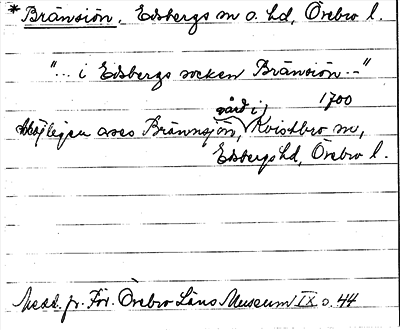 *Bränsiön, Edsbergs sn o. hd, Örebro l.
"... i Edsbergs socken Bränsiön..."
1700
Möjligen avses Brännsjön, gård i Kvistbro sn,
Edsbergs hd, Örebro l.
Medd. fr. För. Örebro Läns Museum IX s. 44